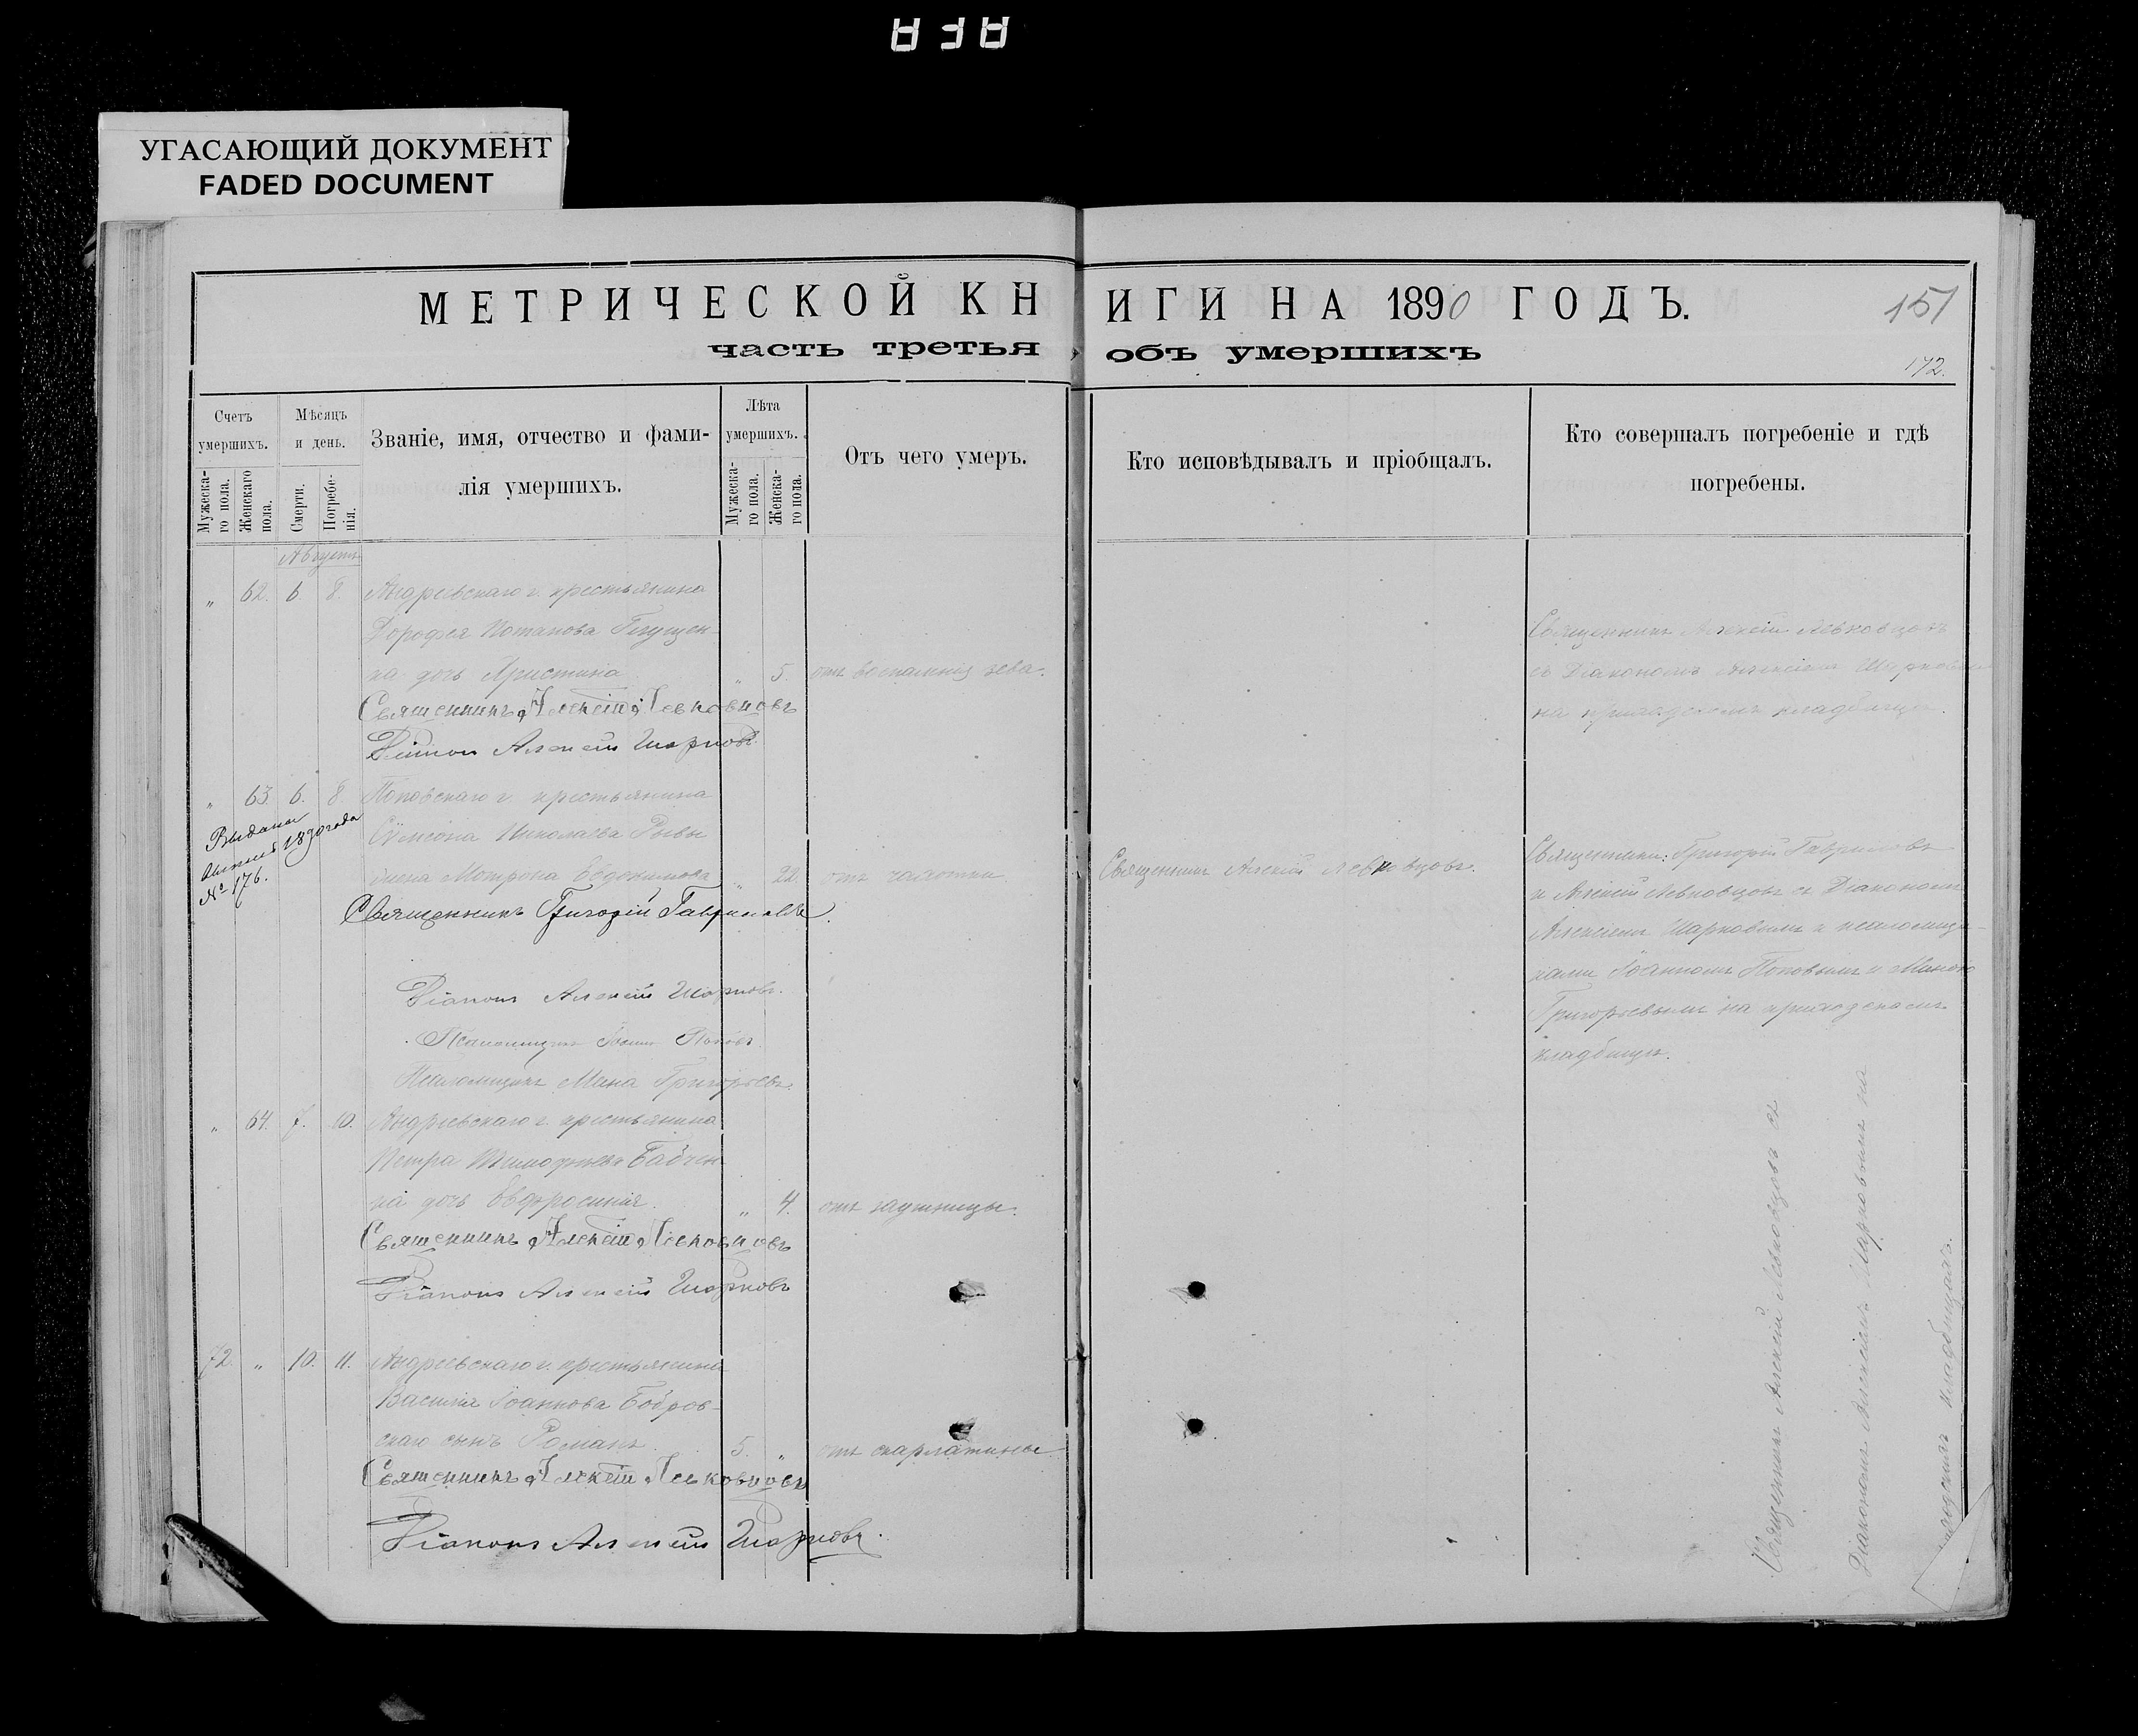 УГАСАЮЩИЙ ДОКУМЕНТ
FADED DOCUMENT
МЕТРИЧЕСКОЙ КНИГИ НА 1890 ГОДЪ.
151
часть третья объ умершихъ
172.
Счетъ умершихъ.
Мужеска-
го пола.
Женскаго
пола.
Мѣсяцъ
и день.
Смерти.
Погребе-
нія.
Званіе, имя, отчество и фами-
лія умершихъ.
Лѣта
умершихъ.
Мужеска-
го пола.
Женска-
го пола.
Отъ чего умеръ.
Кто исповѣдывалъ и пріобщалъ.
Кто совершалъ погребеніе и гдѣ
погребены.
Августъ
„ 62. 6. 8. Андреевскаго г. крестьянина
Дорофея Потапова
ка дочь Христина „ 5. отъ воспаленія зева.
Священникъ Алексій Левковцовъ
Діаконъ Алексій Шарковъ.
Священникъ Алексій Левковцовъ
съ Діакономъ Алексіемъ
на приходскомъ кладбищѣ.
„ 63. 6. 8. Поповскаго г. крестьянина
Сѵмеона Николаева
жена Матрона Евдокимова „ 22. отъ чахотки
Выдана
1890 года
№ 176.
Священникъ Григорій Гавриловъ.
Діаконъ Алексій Шарковъ.
Псаломщикъ Іоаннъ Поповъ.
Псаломщикъ Мина Григорьевъ.
Священникъ Алексій Левковцовъ.
Священники: Григорій Гавриловъ
и Алексій Левковцовъ съ Діакономъ
Алексіемъ Шарковымъ и псаломщи-
ками Іоанномъ Поповымъ и Миною
Григорьевымъ на приходскомъ
кладбищѣ.
„ 64. 7. 10. Андреевскаго г. крестьянина
Петра Тимофеева Бабчен
ка дочь Евфросинія. „ 4. отъ
Священникъ Алексій Левковцовъ
Діаконъ Алексій Шарковъ
72. „ 10. 11. Андреевскаго г. крестьянина
Василія Іоаннова Бобров-
скаго сынъ Романъ. 5. „ отъ скарлатины
Священникъ Алексій Левковцовъ
Діаконъ Алексій Шарковъ.
Священникъ Алексій Левковцовъ съ
Діакономъ Алексіемъ Шарковымъ на
кладбищахъ.